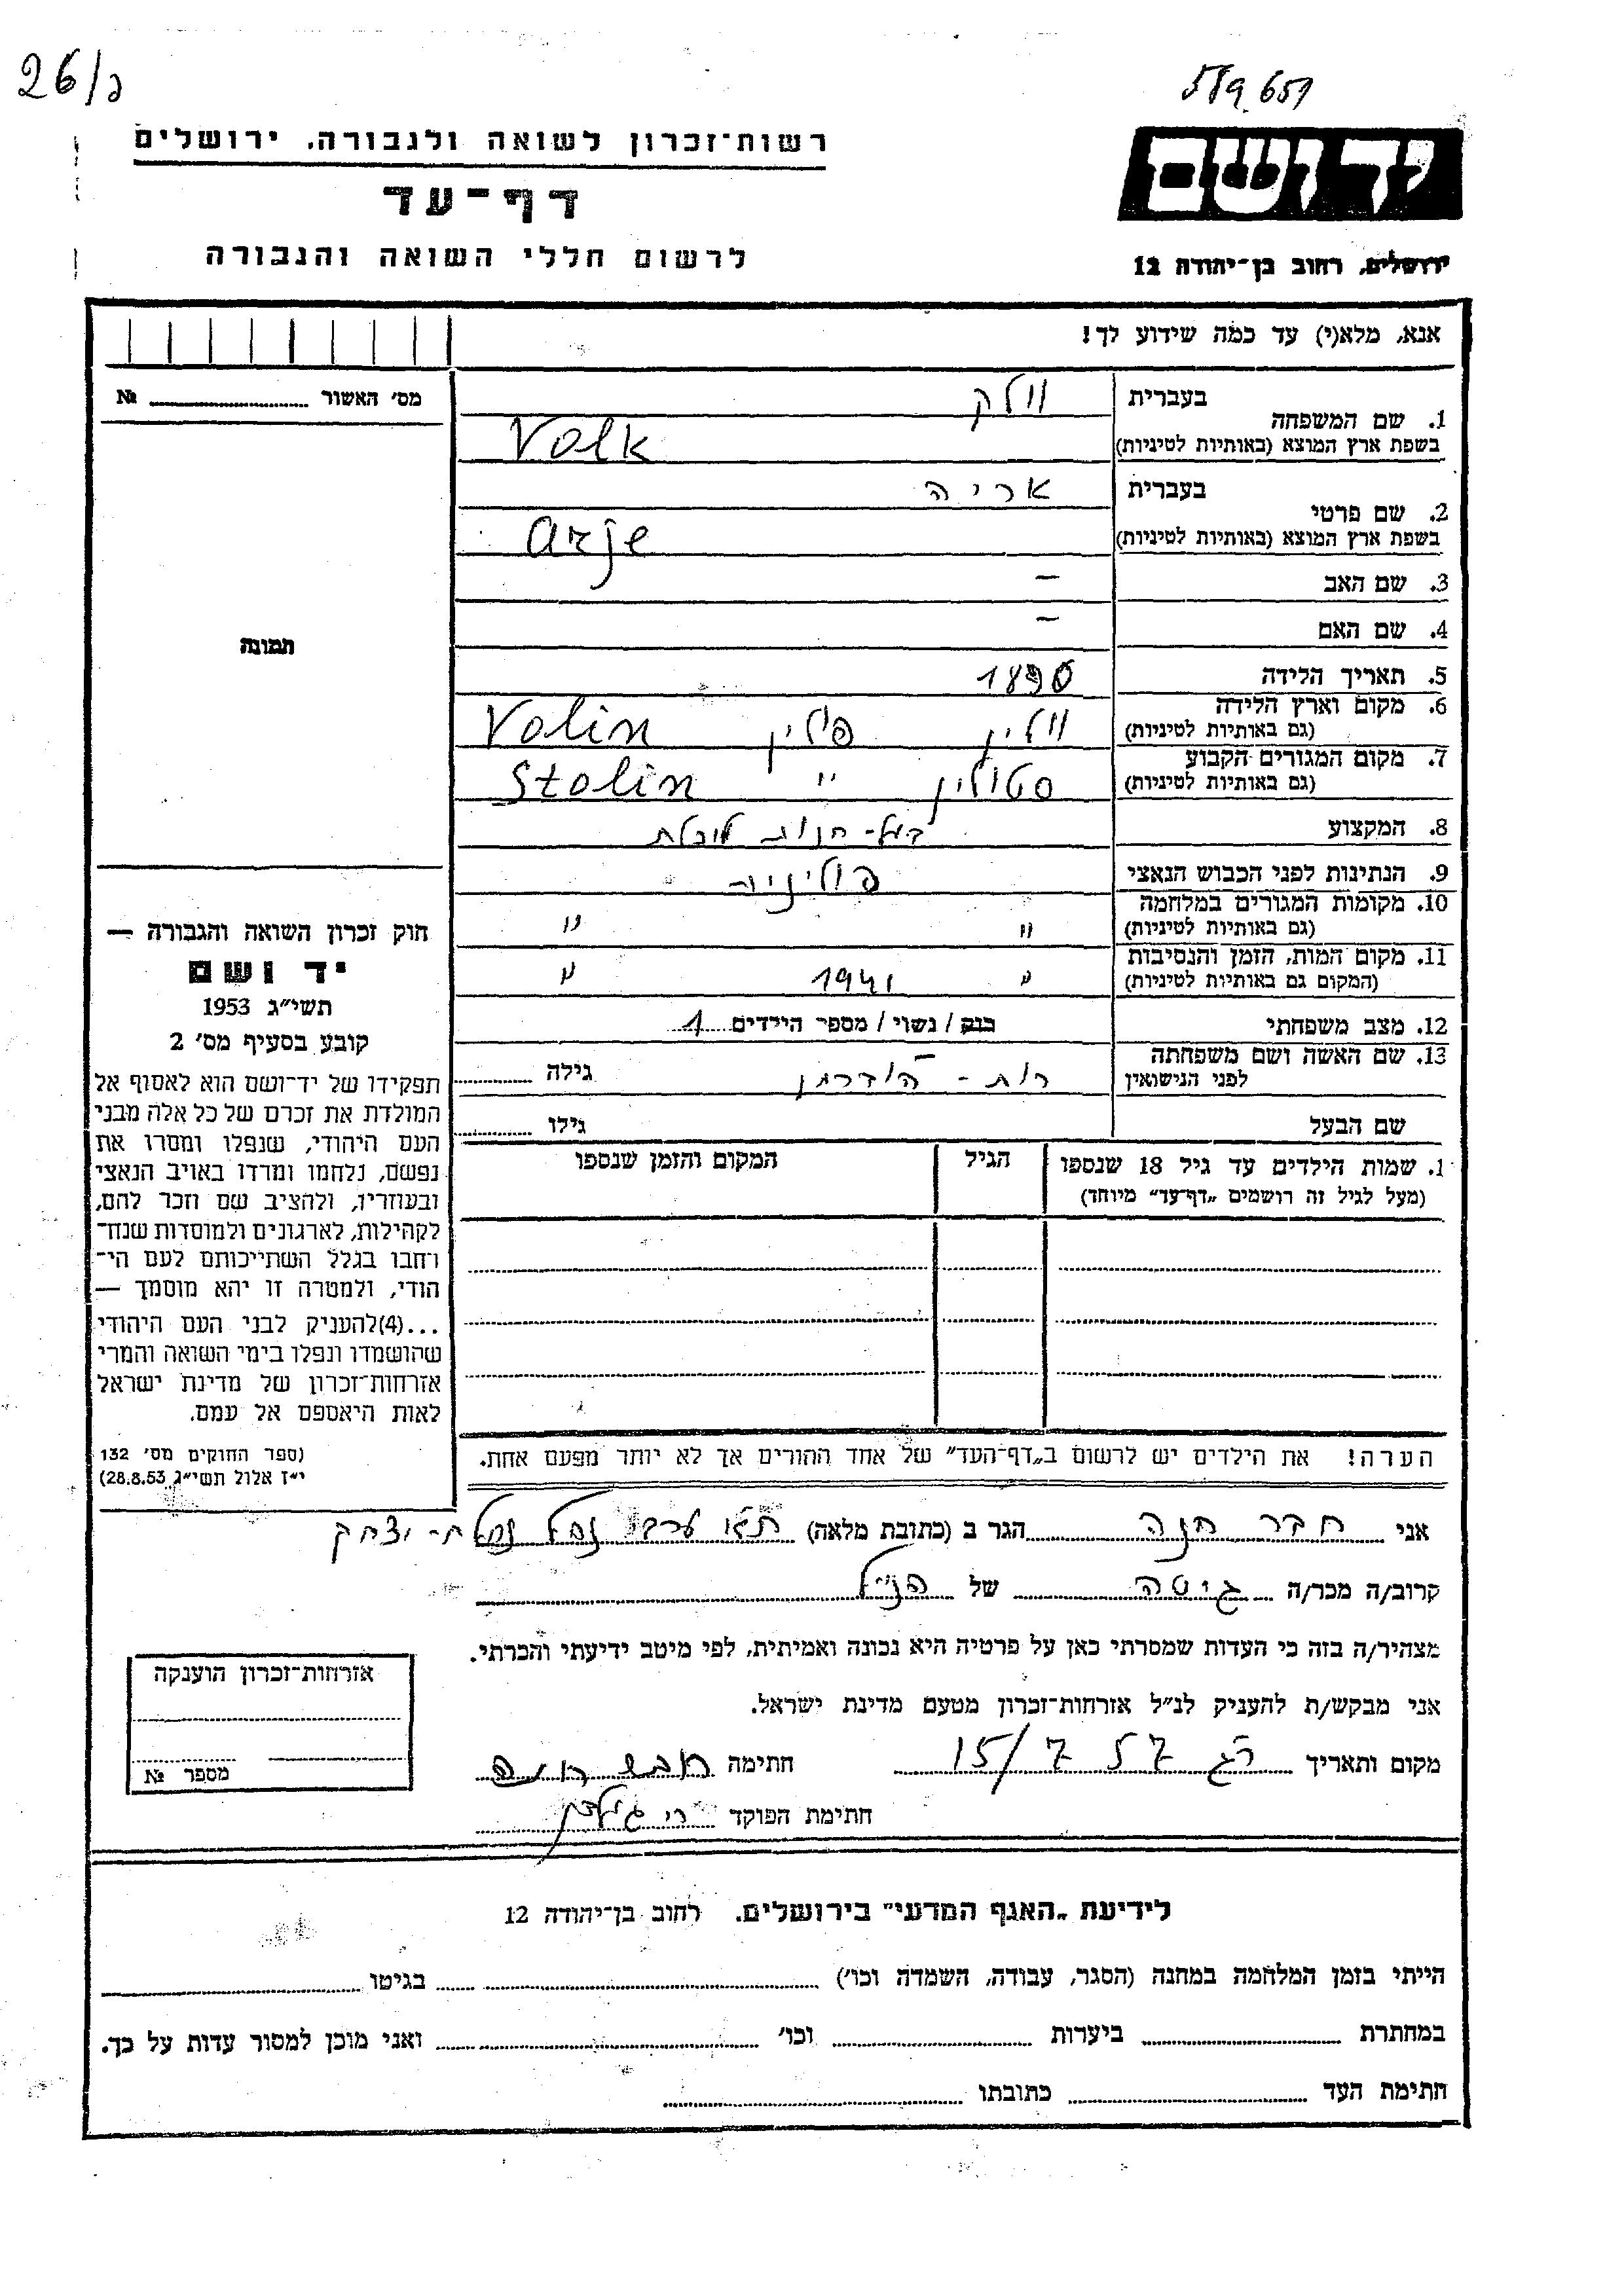 26/ג
519 651
רשות־זכרון לשואה ולגבורה, ירושלים
דף־עד
לרשום חללי השואה והגבורה
יד ושם
ירושלים, רחוב בן־יהודה 12
אנא, מלא(י) עד כמה שידוע לך!
מס׳ האשור № 
תמונה
1. שם המשפחה
בעברית וולק
בשפת ארץ המוצא (באותיות לטיניות) Volk
2. שם פרטי
בעברית אריה
בשפת ארץ המוצא (באותיות לטיניות) Arje
3. שם האב —
4. שם האם —
5. תאריך הלידה 1890
6. מקום וארץ הלידה
(גם באותיות לטיניות) וולין פולין Volin
7. מקום המגורים הקבוע
(גם באותיות לטיניות) סטולין " Stolin
8. המקצוע בעל־חנות
9. הנתינות לפני הכבוש הנאצי פולנית
10. מקומות המגורים במלחמה
(גם באותיות לטיניות) " "
11. מקום המות, הזמן והנסיבות
(המקום גם באותיות לטיניות) " 1941 "
12. מצב משפחתי רווק / נשוי / מספר הילדים 1
13. שם האשה ושם משפחתה
לפני הנישואין רות - גילה
שם הבעל גילו
1. שמות הילדים עד גיל 18 שנספו
(מעל לגיל זה רושמים „דף־עד” מיוחד)
הגיל
המקום והזמן שנספו
הערה! את הילדים יש לרשום ב„דף־העד” של אחד ההורים אך לא יותר מפעם אחת.
חוק זכרון השואה והגבורה —
יד ושם
תשי״ג 1953
קובע בסעיף מס׳ 2
תפקידו של יד־ושם הוא לאסוף אל
המולדת את זכרם של כל אלה מבני
העם היהודי, שנפלו ומסרו את
נפשם, נלחמו ומרדו באויב הנאצי
ובעוזריו, ולהציב שם וזכר להם,
לקהילות, לארגונים ולמוסדות שנח־
רחבו בגלל השתייכותם לעם הי־
הודי, ולמטרה זו יהא מוסמך —
...(4)להעניק לבני העם היהודי
שהושמדו ונפלו בימי השואה והמרי
אזרחות־זכרון של מדינת ישראל
לאות היאספם אל עמם.
(ספר החוקים מס׳ 132
י״ז אלול תשי״ג 28.8.53)
אני חבר חנה הגר ב (כתובת מלאה) נחלת־יצחק
קרוב/ה מכר/ה גיסה של הנ״ל
מצהיר/ה בזה כי העדות שמסרתי כאן על פרטיה היא נכונה ואמיתית, לפי מיטב ידיעתי והכרתי.
אני מבקש/ת להעניק לנ״ל אזרחות־זכרון מטעם מדינת ישראל.
מקום ותאריך רג 15/7 57 חתימה חבר חנה
חתימת הפוקד
אזרחות־זכרון הוענקה
מספר №
לידיעת „האגף המדעי” בירושלים. רחוב בן־יהודה 12
הייתי בזמן המלחמה במחנה (הסגר, עבודה, השמדה וכו׳) בגיטו
במחתרת ביערות וכו׳ ואני מוכן למסור עדות על כך.
חתימת העד כתובתו